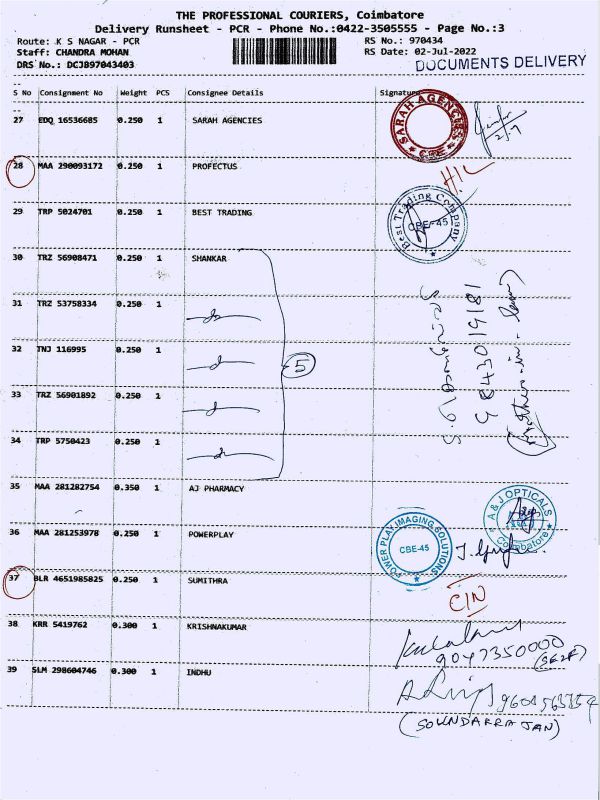 THE PROFESSIONAL COURIERS, Coimbatore
Delivery Runsheet - PCR - Phone No.:0422-3505555 - Page No.:3
Route: K S NAGAR - PCR
RS No.: 970434
Staff: CHANDRA MOHAN
RS Date: 02-Jul-2022
DRS No.: DCJB97043403
DOCUMENTS DELIVERY
S No Consignment No Weight PCS Consignee Details Signature
27 EDQ 16536685 0.250 1 SARAH AGENCIES
SARAH AGENCIES CBE
28 MAA 290093172 0.250 1 PROFECTUS
H/L
29 TRP 5024701 0.250 1 BEST TRADING
Best Trading Company CBE-45
30 TRZ 56908471 0.250 1 SHANKAR
31 TRZ 53758334 0.250 1
32 TNJ 116995 0.250 1
33 TRZ 56901892 0.250 1
34 TRP 5750423 0.250 1
5
9843019181
(Brothers-in-law)
35 MAA 281282754 0.350 1 AJ PHARMACY
A & J OPTICALS Coimbatore
36 MAA 281253978 0.250 1 POWERPLAY
POWER PLAY IMAGING SOLUTIONS CBE-45
37 BLR 4651985825 0.250 1 SUMITHRA
CIN
38 KRR 5419762 0.300 1 KRISHNAKUMAR
9047350000
(SELF)
39 SLM 298604746 0.300 1 INDHU
(SOUNDARRAJAN)